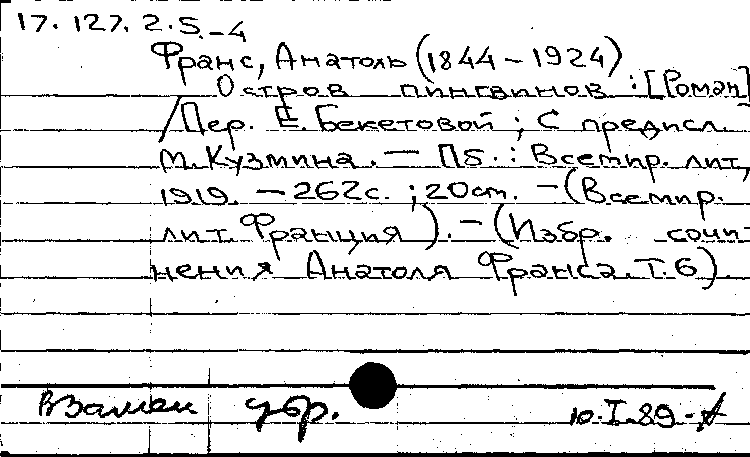 17. 127. 2. 5.-4
Франс, Анатоль (1844 – 1924)
Остров пингвинов : [Роман]
/ Пер. Е. Бекетовой ; С предисл.
М. Кузмина. — Пб. : Всемир. лит,
1919. – 262с. ; 20cm. – (Всемир.
лит. Франция). – (Избр. сочи-
нения Анатоля Франса. Т. 6)
Взамен утр. 10. I. 89 -